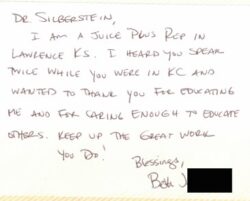 DR. SILBERSTEIN,
I AM A JUICE PLUS REP IN
LAWRENCE KS. I HEARD YOU SPEAK
TWICE WHILE YOU WERE IN KC AND
WANTED TO THANK YOU FOR EDUCATING
ME AND FOR CARING ENOUGH TO EDUCATE
OTHERS. KEEP UP THE GREAT WORK
YOU DO!
Blessings,
Beth J